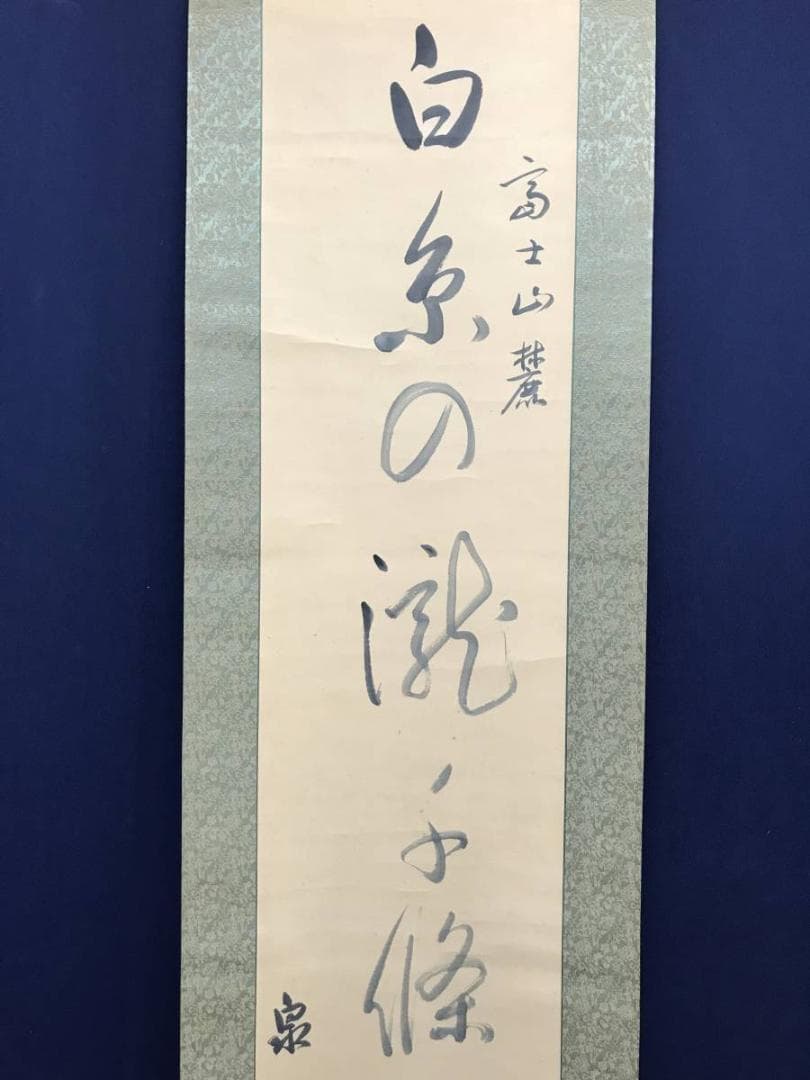 富士山麓
白糸の瀧千條
泉